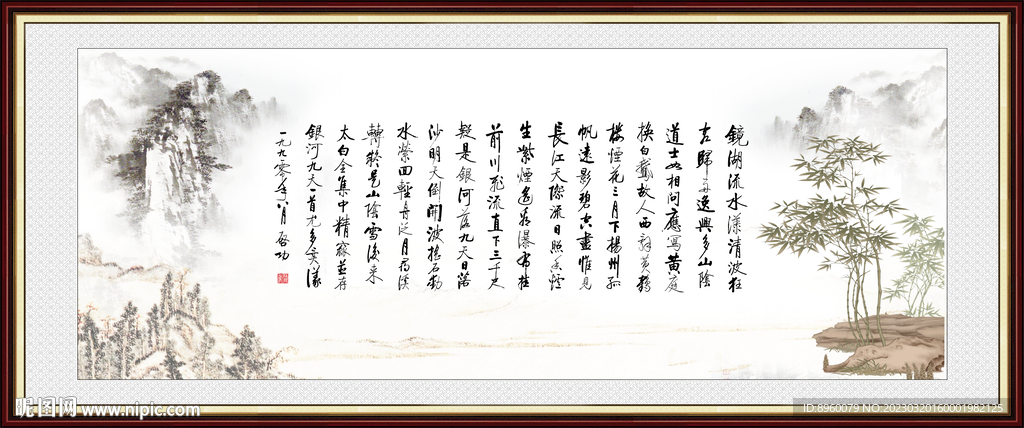 鏡湖流水漾清波狂
客歸舟逸興多山陰
道士如相問應寫黃庭
換白鵞故人西辭黃鶴
樓煙花三月下揚州孤
帆遠影碧空盡惟見
長江天際流日照香爐
生紫煙遙看瀑布挂
前川飛流直下三千尺
疑是銀河落九天日落
沙明天倒開波搖石動
水縈回輕舟泛月尋溪
轉疑是山陰雪後來
太白全集中精粹並存
銀河九天一首尤多異漾
一九九零年八月 啓功
昵图网 www.nipic.com
ID:8960079 NO:20230320160001982125